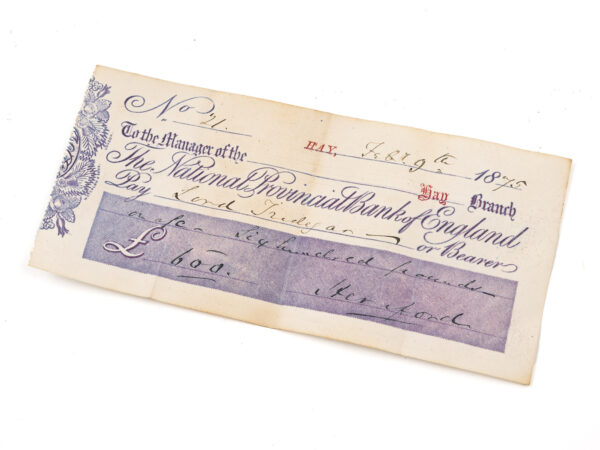 No 71.
HAY, Feby 9th 1875
To the Manager of the Hay Branch
The National Provincial Bank of England
Pay Lord Tredegar or Bearer
Six hundred pounds
£ 600. Hereford